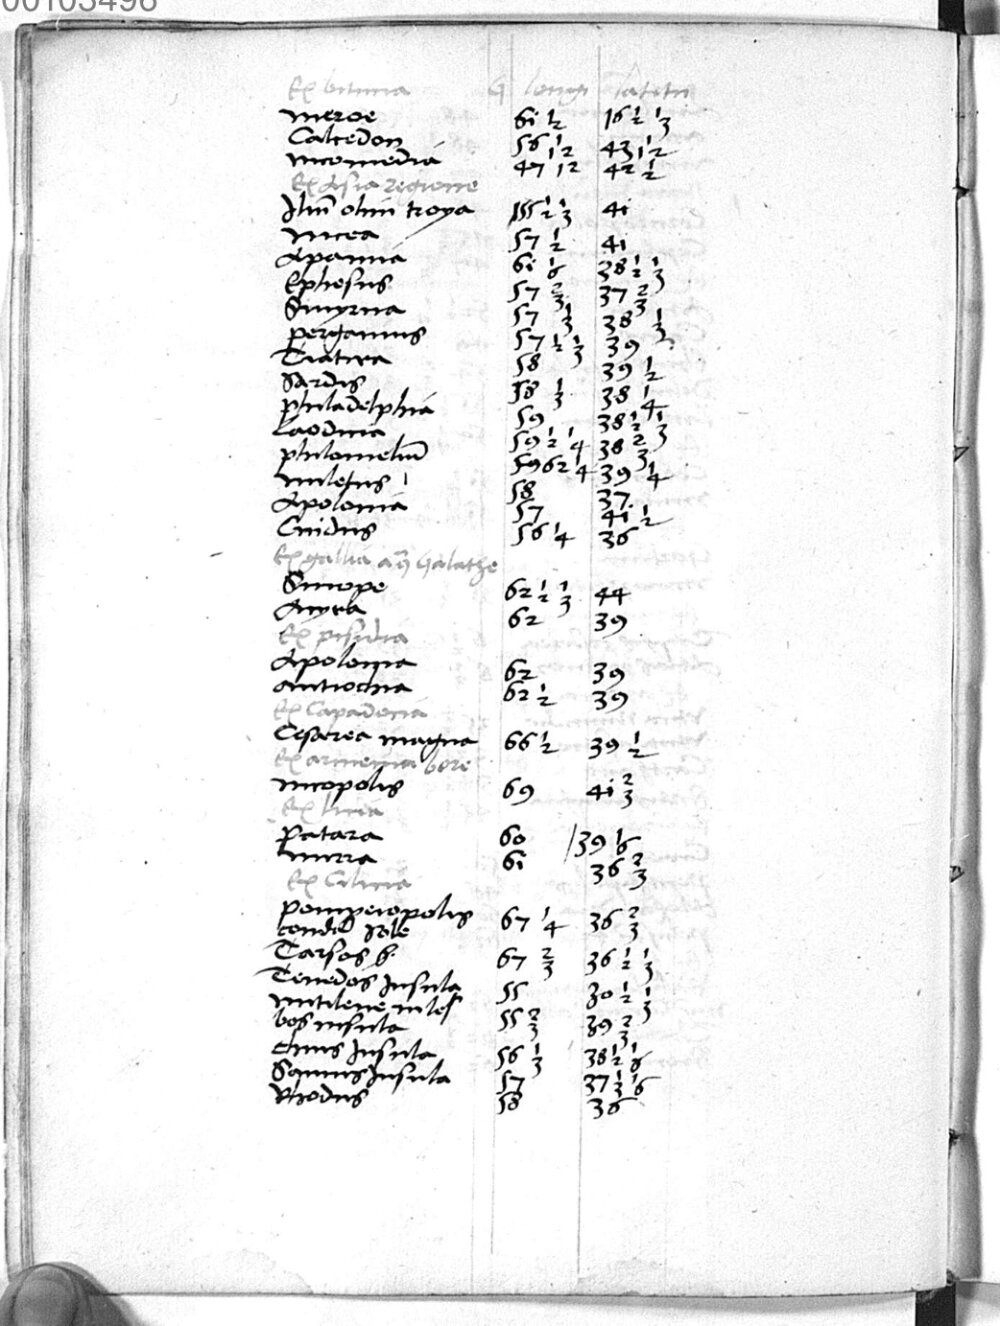 00103496
Ex bitinia G longi latitu
meroe 61 1/2 16 1/2 1/3
Calcedon 56 1/12 43 1/12
nicomedia 47 1/12 42 1/2
Ex Asia regione
Iliũ olim troya 55 1/2 1/3 41
nicea 57 1/2 41
Apamia 61 1/6 38 1/2 1/3
Ephesus 57 2/3 37 2/3
Smyrna 57 1/3 38 1/3
pergamus 57 1/2 1/3 39
Tiatira 58 39 1/2
Sardis 58 1/3 38 1/4
philadelphia 59 38 1/2 1/3
Laodicia 59 1/2 1/4 38 2/3
philomeliũ 39 1/4
miletus 58 37
Apolonia 57 41 1/2
Cnidus 56 1/4 36
Ex gallia Galathe
Sinope 62 1/2 1/3 44
Ancyra 62 39
Ex pisidia
Apolonia 62 39
Antiochia 62 1/2 39
Ex Capadocia
Cesarea magna 66 1/2 39 1/2
Ex armenia bore
nicopolis 69 41 2/3
Ex licia
Patara 60 39 1/6
mirra 61 36 2/3
Ex Cilicia
Pompeiopolis 67 1/4 36 2/3
Tarsos 67 2/3 36 1/2 1/3
Tenedos Insula 55 30 1/2 1/3
mitilene in les
bos insula 55 2/3 39 2/3
Chius Insula 56 1/3 38 1/2
Samus Insula 57 37
Rhodus 58 36